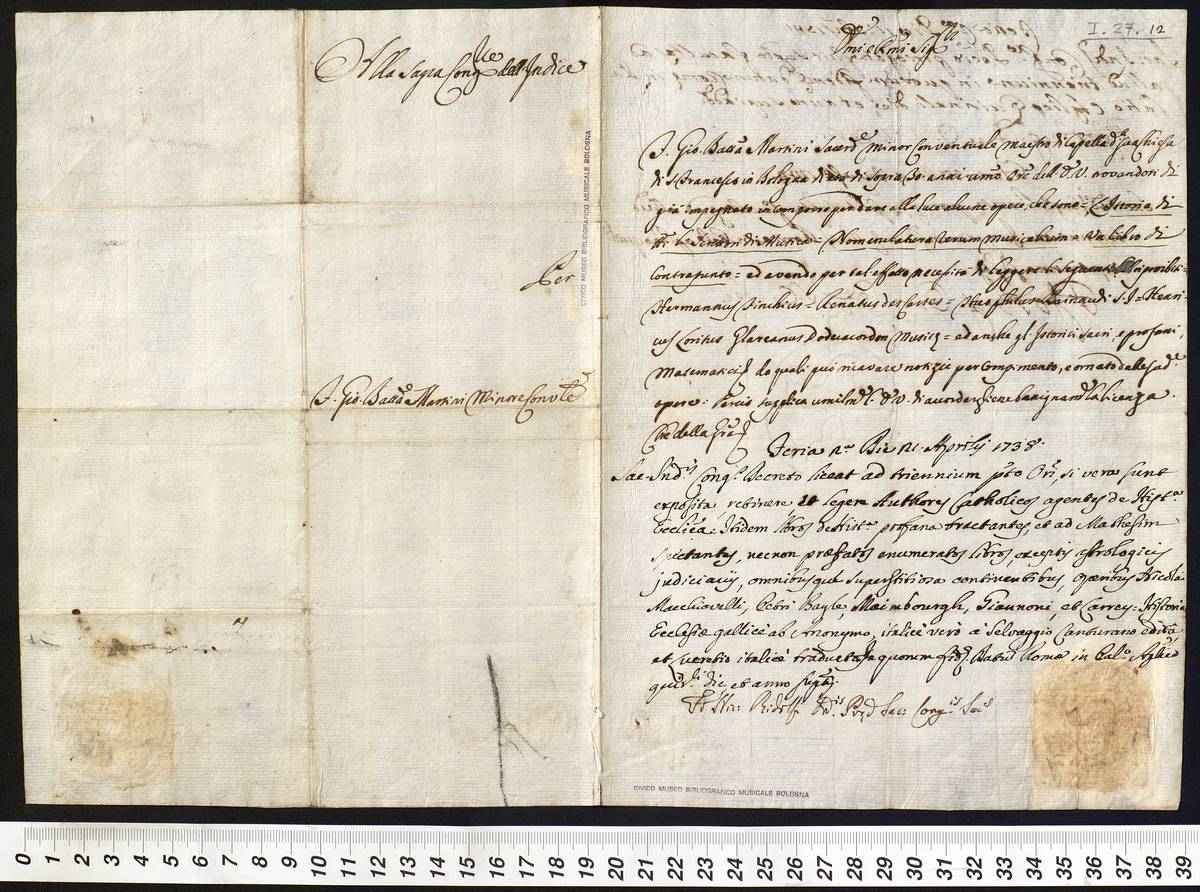 Alla Sagra Cong.ne dell'Indice
Per
F. Gio. Batta Martini Minore Conv.le
CIVICO MUSEO BIBLIOGRAFICO MUSICALE BOLOGNA
I. 27. 12
Emi e Rmi Sig.ri
F. Gio. Batta Martini Sacerd.e Minor Conventuale Maestro di Capella
di S. Francesco in Bologna di età di sopra 30 anni umo Ore dell' E.V. trovandosi di
già impegnato in comporre per dare alla luce alcune opere, che sono = L'Istoria di
di Musica = Nomenclatura rerum musicalium = Un libro di
Contrapunto = ed avendo per tal effetto necessità di leggere li seguenti libri proibiti =
Hermannus Finchius = Renatus des Cartes = Theophilus Rainaudi S.I. = Henri-
cus Loritus Glareanus Dodecacordon Musice = ed anche gl' Istorici sacri, e profani,
Matematici da quali può ricavare notizie per compimento, e ornato delle sud.e
opere: Perciò supplica umilm.e l' E.V. di accordargliene benignam.e la licenza.
Che della
Feria 2.a Die 21 Aprilis 1738.
Sac. Ind.is Cong.s Decreto liceat ad triennium pto Ori, si vera sunt
exposita retinere, et legere Authores Catholicos agentes de Hist.a
Ecclica: Itidem libros de Hist.a profana tractantes, et ad Mathesim
spectantes, necnon præfatos enumeratos libros, exceptis Astrologicis
judiciariis, omnibusque superstitiosa continentibus, operibus Nicolai
Macchiavelli, Petri Bayle, Maimbourgh, Giannoni, et Carrey: Historia
Ecclesiæ gallicè ab Anonymo, italicè verò a Selvaggio Canturano edita,
et italicè traducta. In quorum fidem Datum Romæ in
die et anno supra.
Fr. Nic. Ridolfi Ord. Pred. Sac. Cong.is Sec.s
CIVICO MUSEO BIBLIOGRAFICO MUSICALE BOLOGNA
0 1 2 3 4 5 6 7 8 9 10 11 12 13 14 15 16 17 18 19 20 21 22 23 24 25 26 27 28 29 30 31 32 33 34 35 36 37 38 39